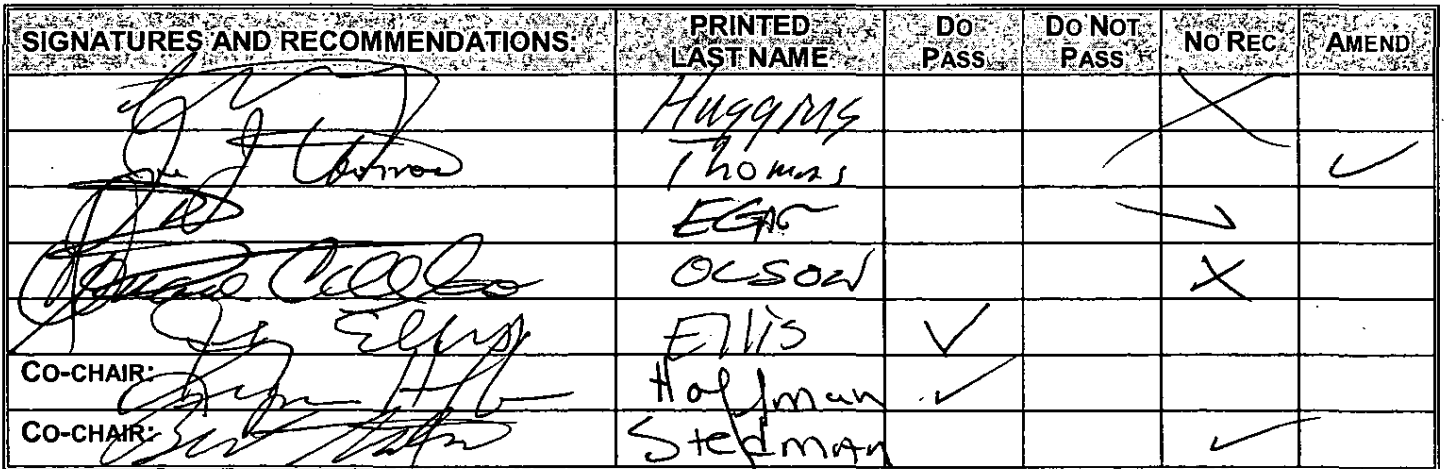 SIGNATURES AND RECOMMENDATIONS: PRINTED LAST NAME DO PASS DO NOT PASS NO REC AMEND
Huggins X
Thomas ✓
EGAN ✓
OLSON X
Ellis Ellis ✓
CO-CHAIR: Hoffman ✓
CO-CHAIR: Stedman ✓